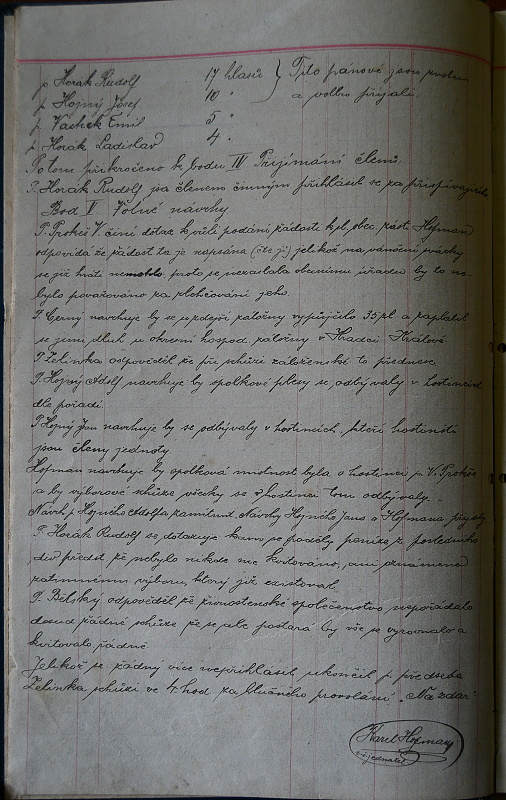 p. Horák Rudolf 17 hlasů } Tito pánové jsou zvoleni
p. Hojný Josef 10 " a volbu přijali.
p. Vachek Emil 5 "
p. Horák Ladislav 4 "
Potom přikročeno k bodu IV Přijímání členů.
P. Horák Rudolf za členem činným přihlásil se za přispívajícího
Bod V Volné návrhy
P. Prokeš V. činí dotaz k vůli podání žádosti k sl. obec. zást. Hofman
odpovídá že žádost ta je napsána (čte ji) jelikož na vánoční svátky
se již hráti nemohlo, proto se nezaslala obecnímu úřadu by to ne-
bylo považováno za zlehčování jeho.
P. Černý navrhuje by se u zdejší záložny vypůjčilo 35 zl a zaplatil
se jimi dluh u okresní hospod. záložny v Hradci Králové
P. Zelinka odpověděl že při schůzi záloženské to přednese.
P. Hojný Adolf navrhuje by spolkové plesy se odbývaly v hostincích
dle pořadí.
P. Hojný Jan navrhuje by se odbývaly v hostincích, kteří hostinští
jsou členy jednoty
Hofman navrhuje by spolková místnost byla v hostinci p. V. Prokeše
a by výborové schůze všecky se v hostinci tom odbývaly.
Návrh p. Hojného Adolfa zamítnut. Návrhy Hojného Jana a Hofmana přijaty
P. Horák Rudolf se dotazuje kam se poděly peníze z posledního
div. předst. že nebylo nikde nic kvitováno, ani oznámeno
zatimnému výboru, který již existoval.
P. Bělský odpověděl že živnostenské společenstvo neuspořádalo
dosud žádné schůze že se ale postará by vše se vyrovnalo a
kvitovalo řádně
Jelikož se žádný více nepřihlásil ukončil p. předseda
Zelinka schůzi ve 4 hod. za hlučného provolání „Na zdar"
Karel Hofman
jednatel